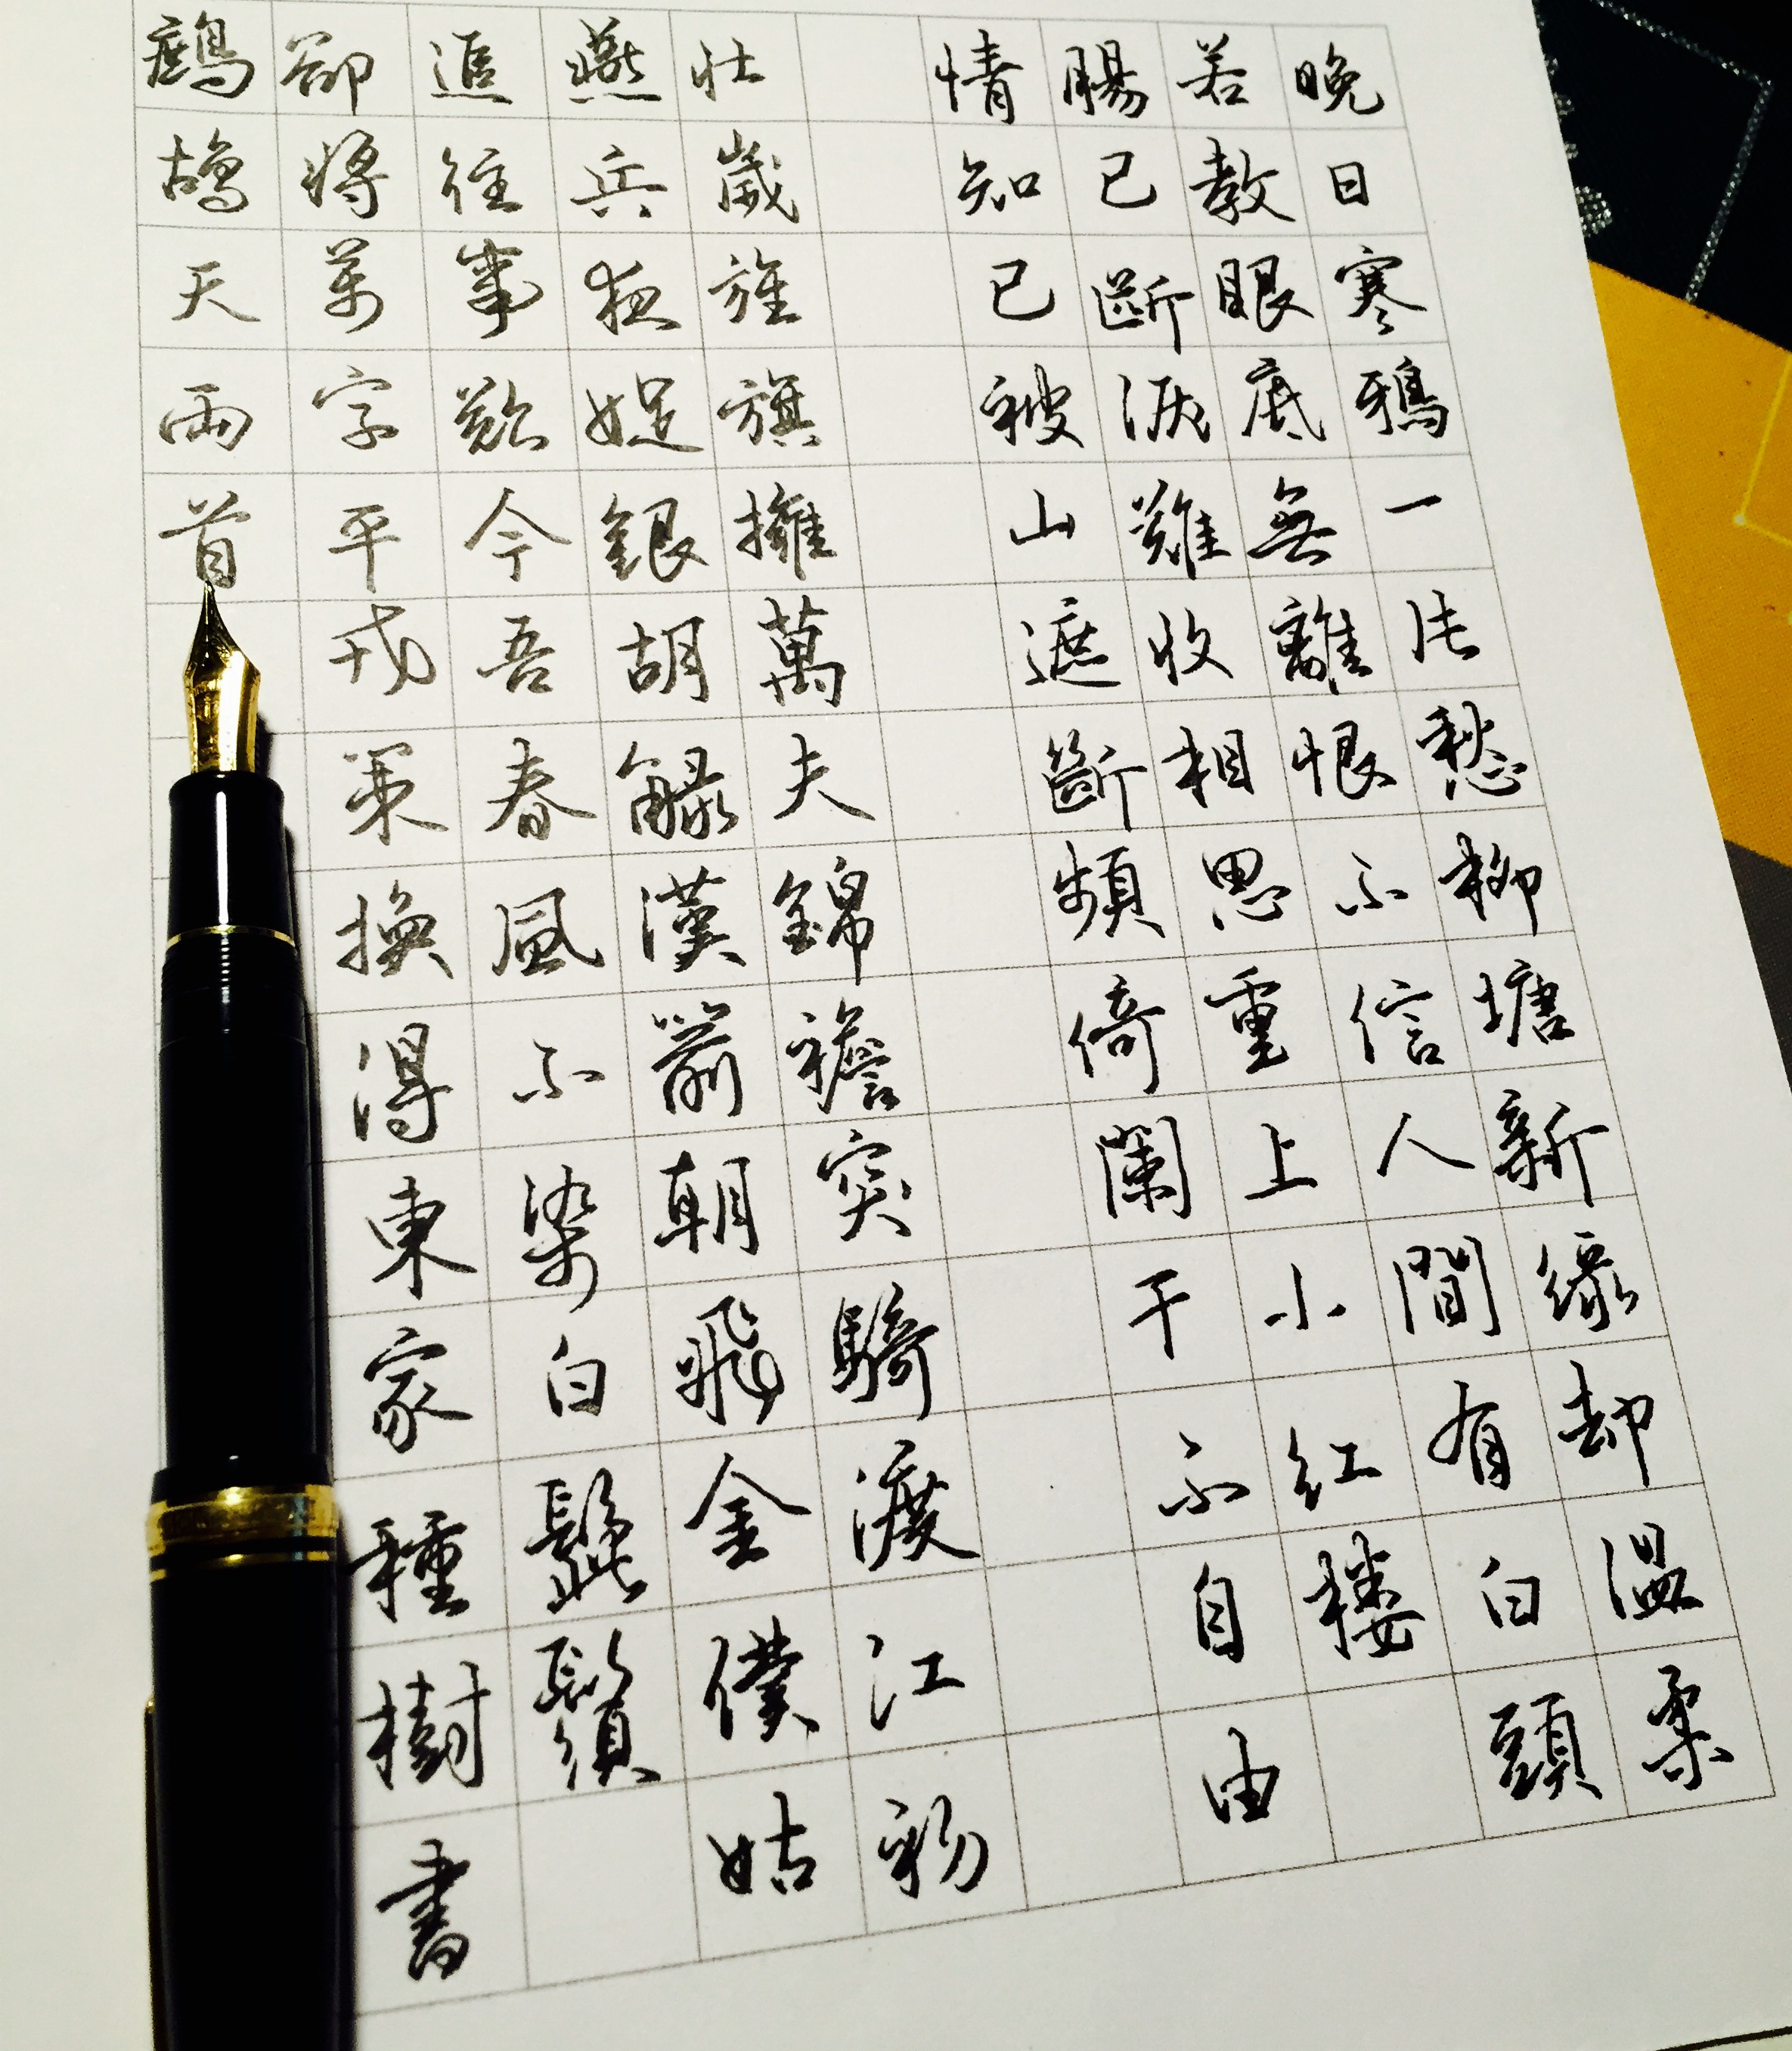 晚日寒鴉一片愁柳塘新綠却溫柔
若教眼底無離恨不信人間有白頭
腸已斷淚難收相思重上小紅樓
情知已被山遮斷頻倚闌干不自由
壯歲旌旗擁萬夫錦襜突騎渡江初
燕兵夜娖銀胡觮漢箭朝飛金僕姑
追往事歎今吾春風不染白髭鬚
卻將萬字平戎策換得東家種樹書
鷓鴣天兩首